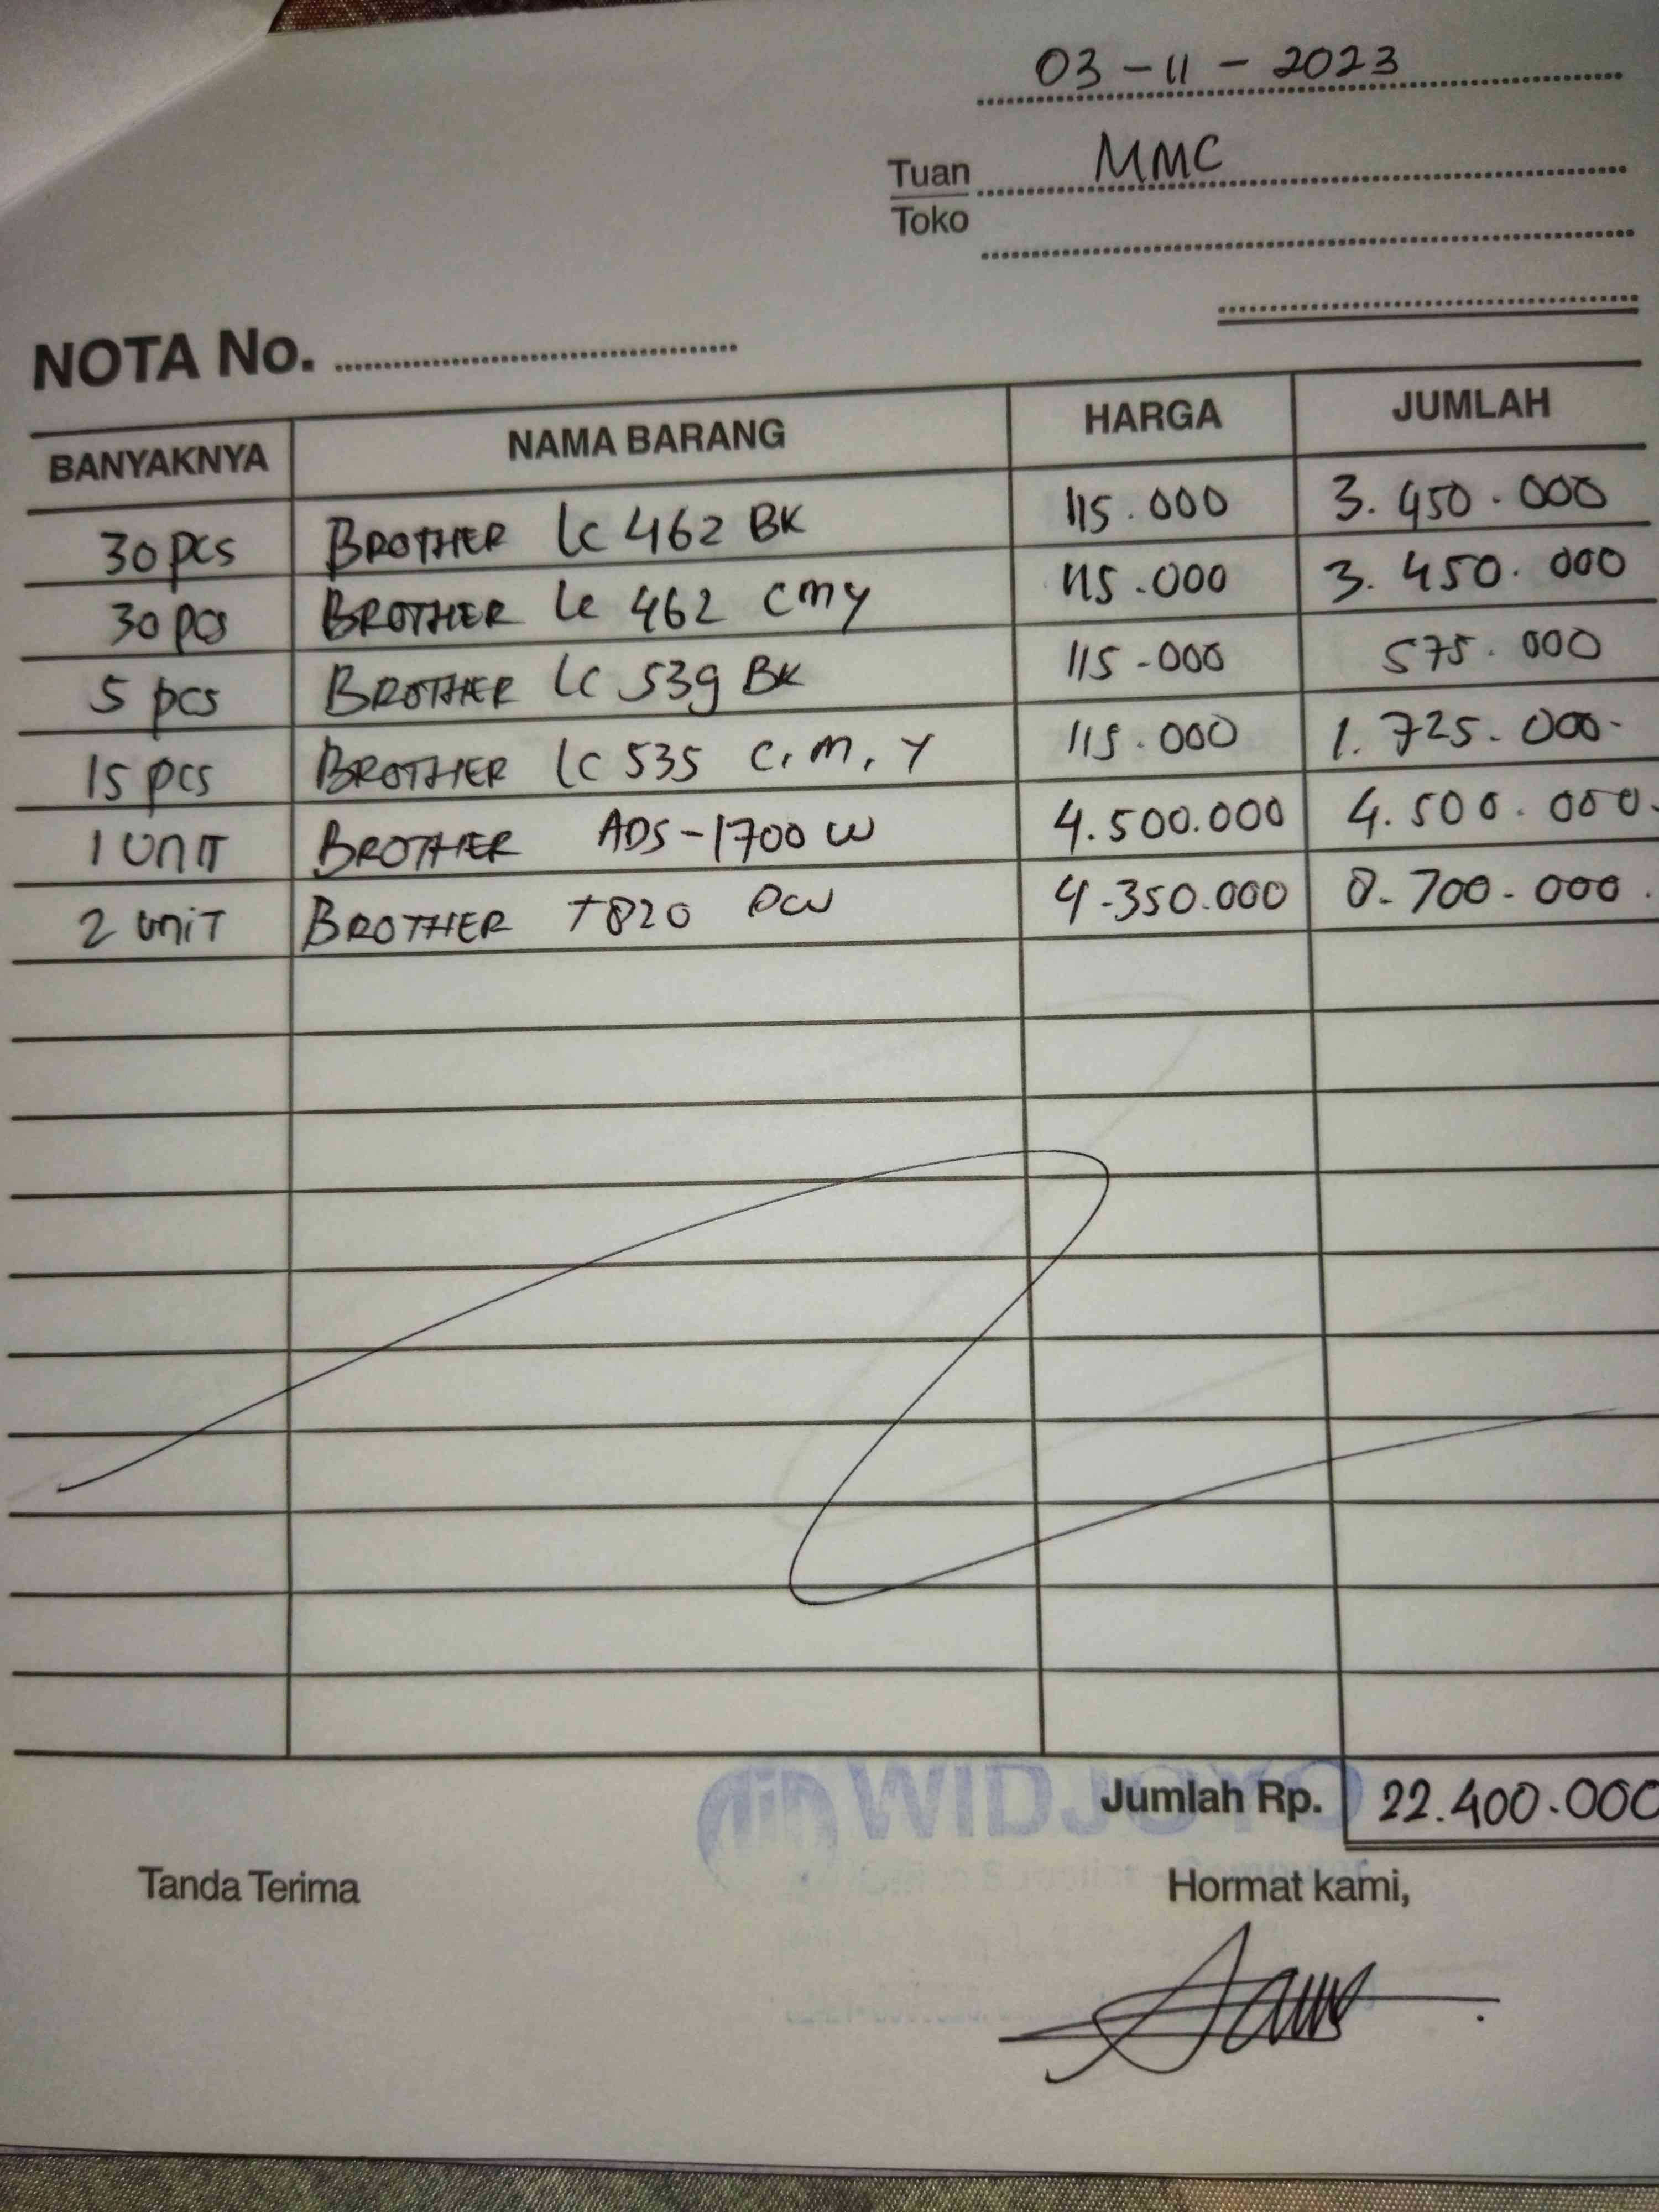 03 - 11 - 2023
Tuan MMC
Toko
NOTA No.
BANYAKNYA NAMA BARANG HARGA JUMLAH
30 pcs BROTHER LC 462 BK 115.000 3.450.000
30 pcs BROTHER LC 462 CMY 115.000 3.450.000
5 pcs BROTHER LC 539 BK 115-000 575.000
15 pcs BROTHER LC 535 C, M, Y 115.000 1.725-000-
1 UNIT BROTHER ADS-1700 W 4.500.000 4.500.000-
2 UNIT BROTHER T820 DW 4-350.000 8-700-000.
WIDJOYO
Jumlah Rp. 22.400.000
Tanda Terima Hormat kami,